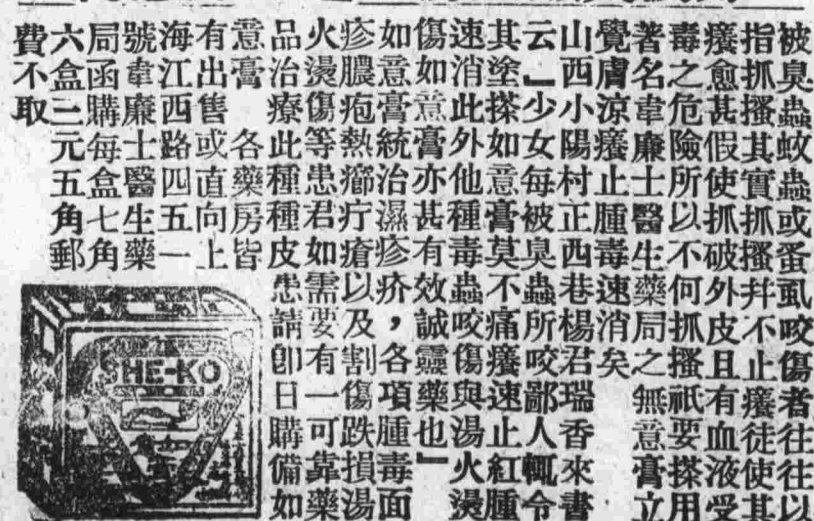 被臭蟲蚊蟲或蚤虱咬傷者往往以
指抓搔其實抓搔幷不止癢徒使其
癢愈甚假使抓破外皮且有血液受
毒之危險所以不何抓搔祇要搽用
著名韋廉士醫生藥局之無意膏立
覺膚涼癢止腫毒速消矣
山西小陽村正西巷楊君瑞香來書
云』少女每被臭蟲所咬鄙人輒令
其塗搽如意膏莫不痛癢速止紅腫
速消此外他種毒蟲咬傷與湯火燙
傷如意膏亦甚有效誠靈藥也』
如意膏統治濕疹疥，各項腫毒面
疹膿疱熱癤疔瘡以及割傷跌損湯
火燙傷等患君如需要有一可靠藥
品治療此種種皮恙請卽日購備如
意膏 各藥房皆
有出售或直向上
海江西路四五一
號韋廉士醫生藥
局函購每盒七角
六盒三元五角郵
費不取
SHE-KO